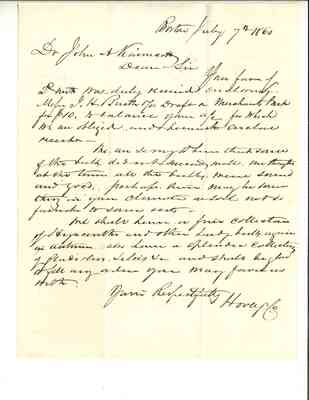 Boston July 7th 1860
Dr John A Kinnicutt
Dear Sir
Your favor of
was duly received enclosing
Messrs J. H. Smith & Co Draft on Merchants Bank
for $10. to balance your a/c for which
we are obliged and herewith enclose
receipt
We are sorry to hear that some
of the bulbs did not succeed well. We thought
at the time all the bulbs were sound
and good, perhaps there may be some
thing in your climate or soil not so
favorable to some sorts.
We shall have a fine collection
of Hyacinths and other hardy bulbs again
in autumn also have a splendid collection
of Gladiolus, Lilies &c and shall be glad
to fill any order you may favor us
with
Yours Respectfully
Hovey & Co